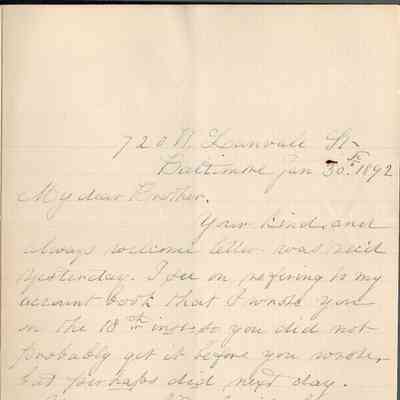 720 W. Lanvale St.
Baltimore Jan 30th. 1892
My dear Brother.
Your kind and
always welcome letter was rec'd
yesterday. I see on refering to my
account book that I wrote you
on the 18th inst. so you did not
probably get it before you wrote,
but perhaps did next day.